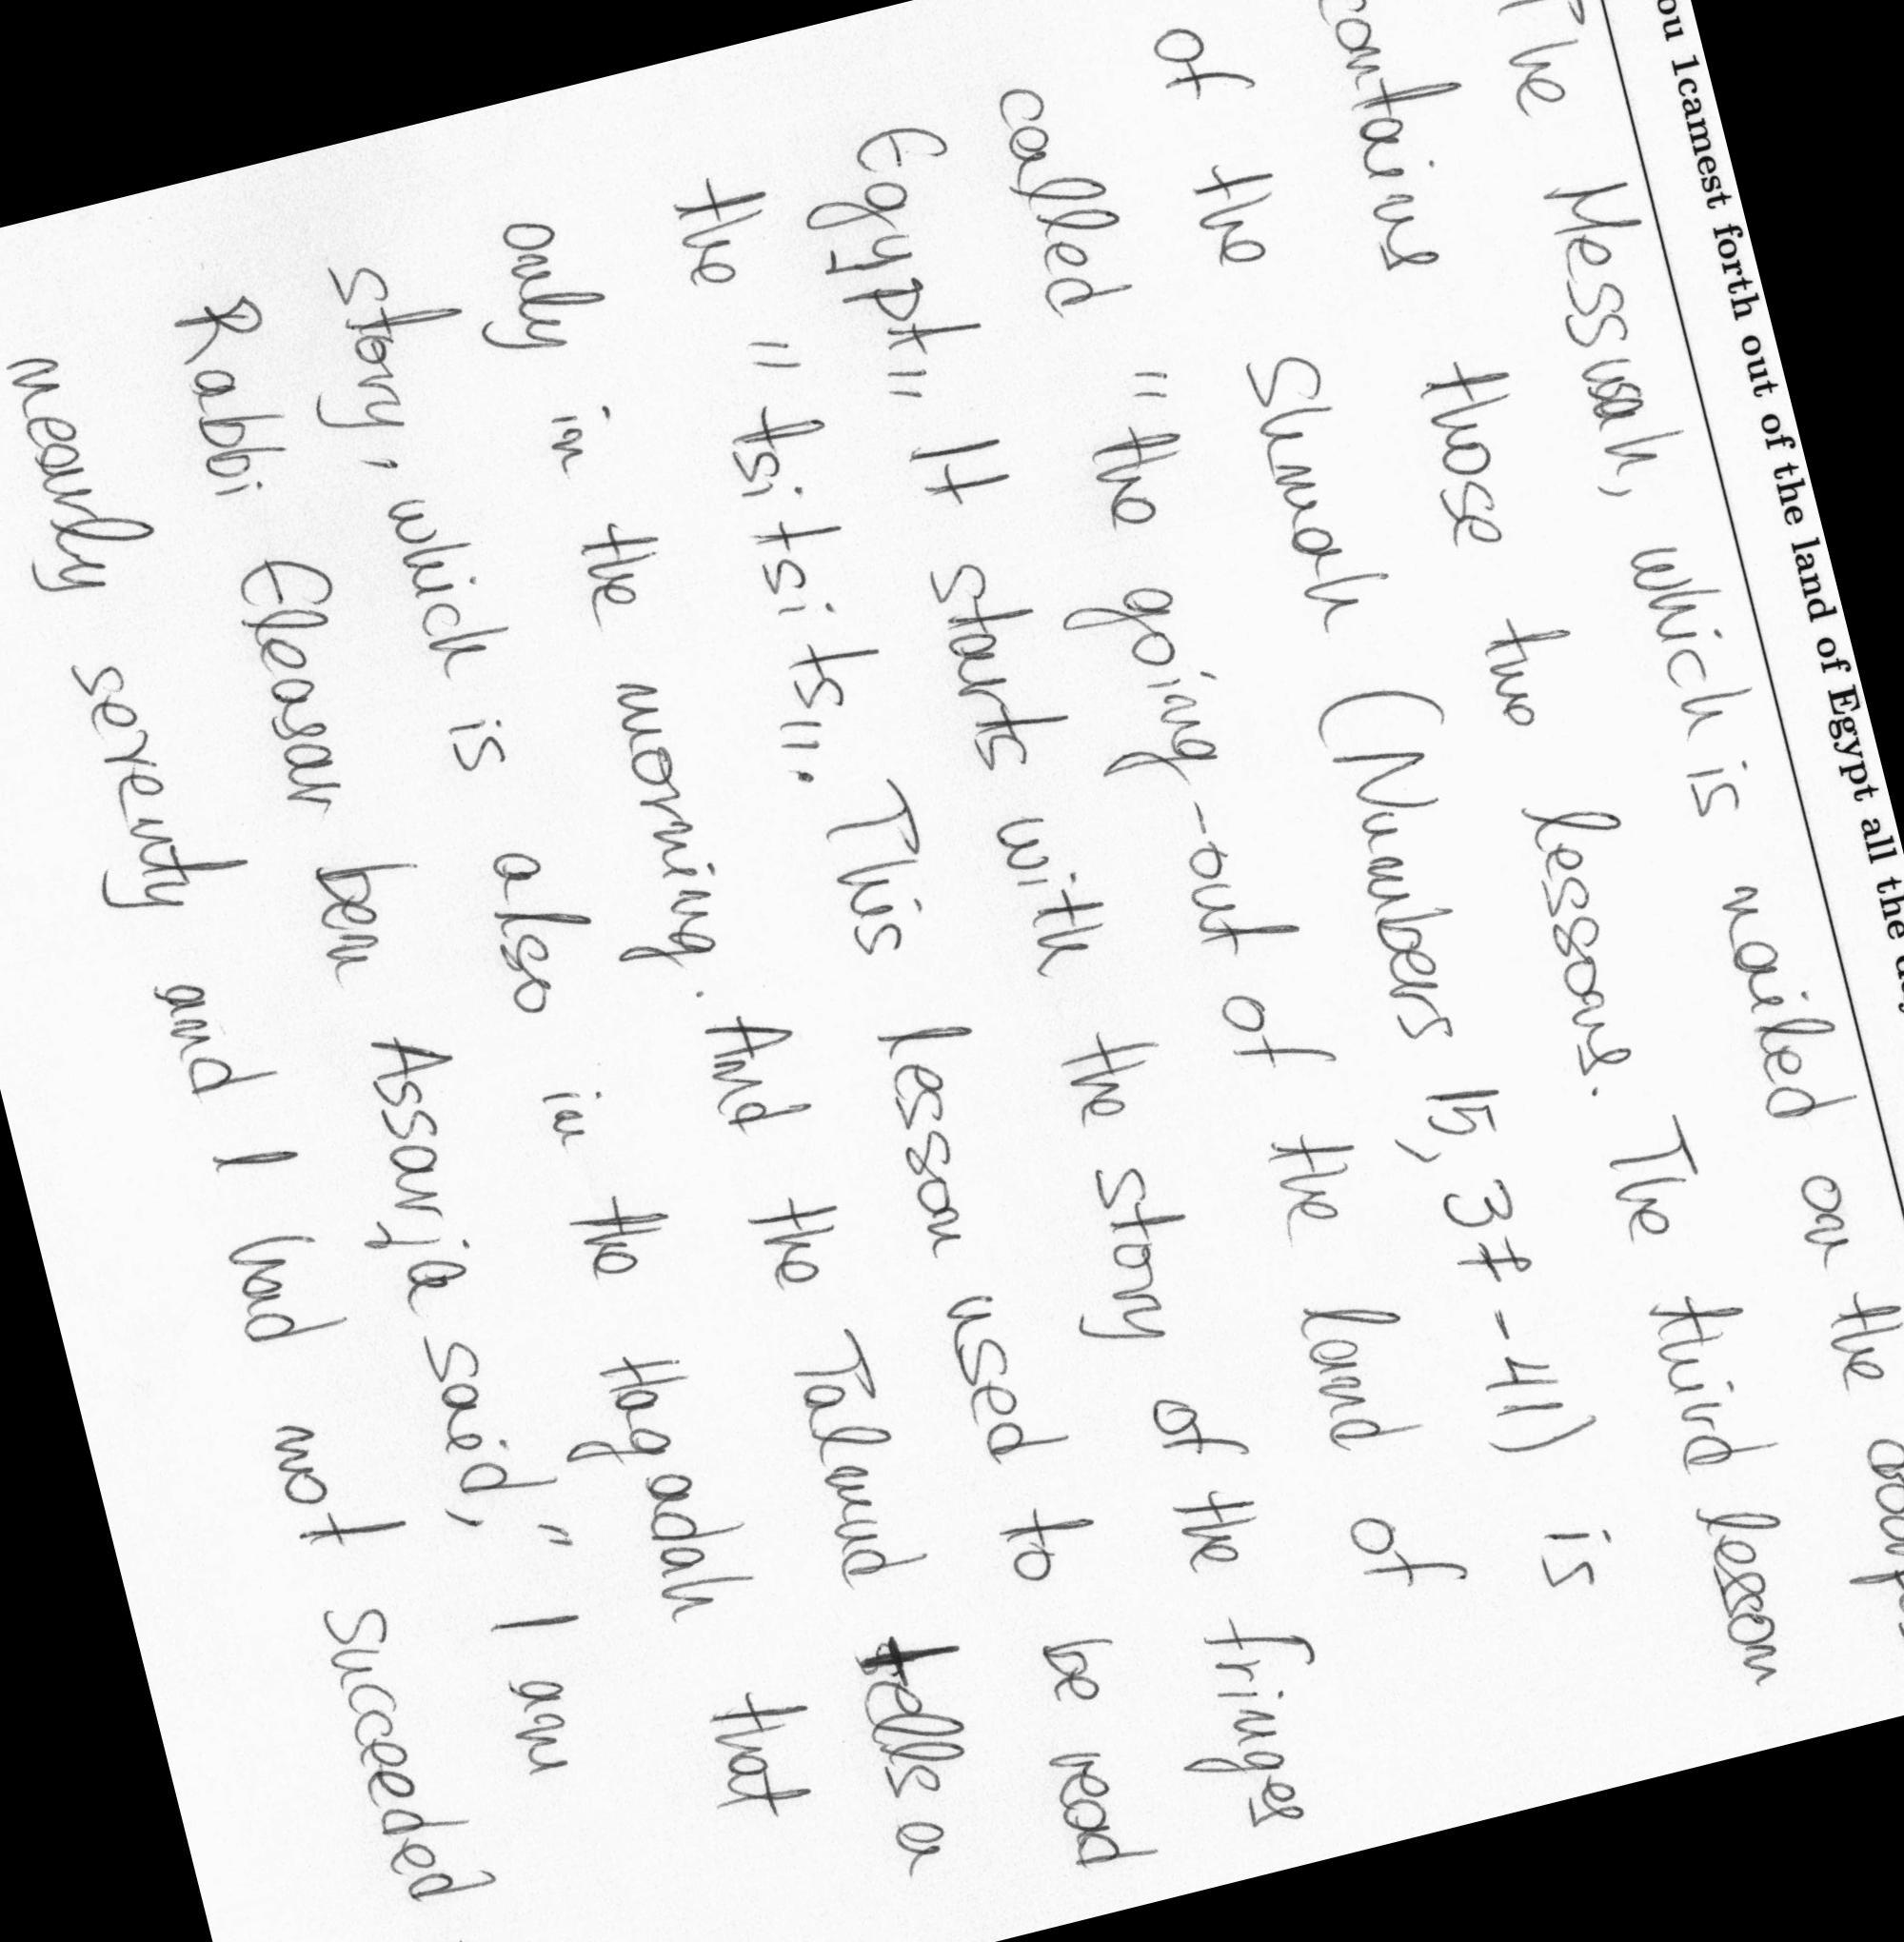 ou 1camest forth out of the land of Egypt all the
The Messusah, which is nailed on the
contains those two lessons. The third lesson
of the Shmah (Numbers 15, 37-41) is
called "the going-out of the land of
Egypt" It starts with the story of the fringes
the "tsitsits". This lesson used to be read
only in the morning. And the Talmud tells a
story, which is also in the Hagadah that
Rabbi Eleasar ben Assarja said, "I am
nearly seventy and I had not succeeded